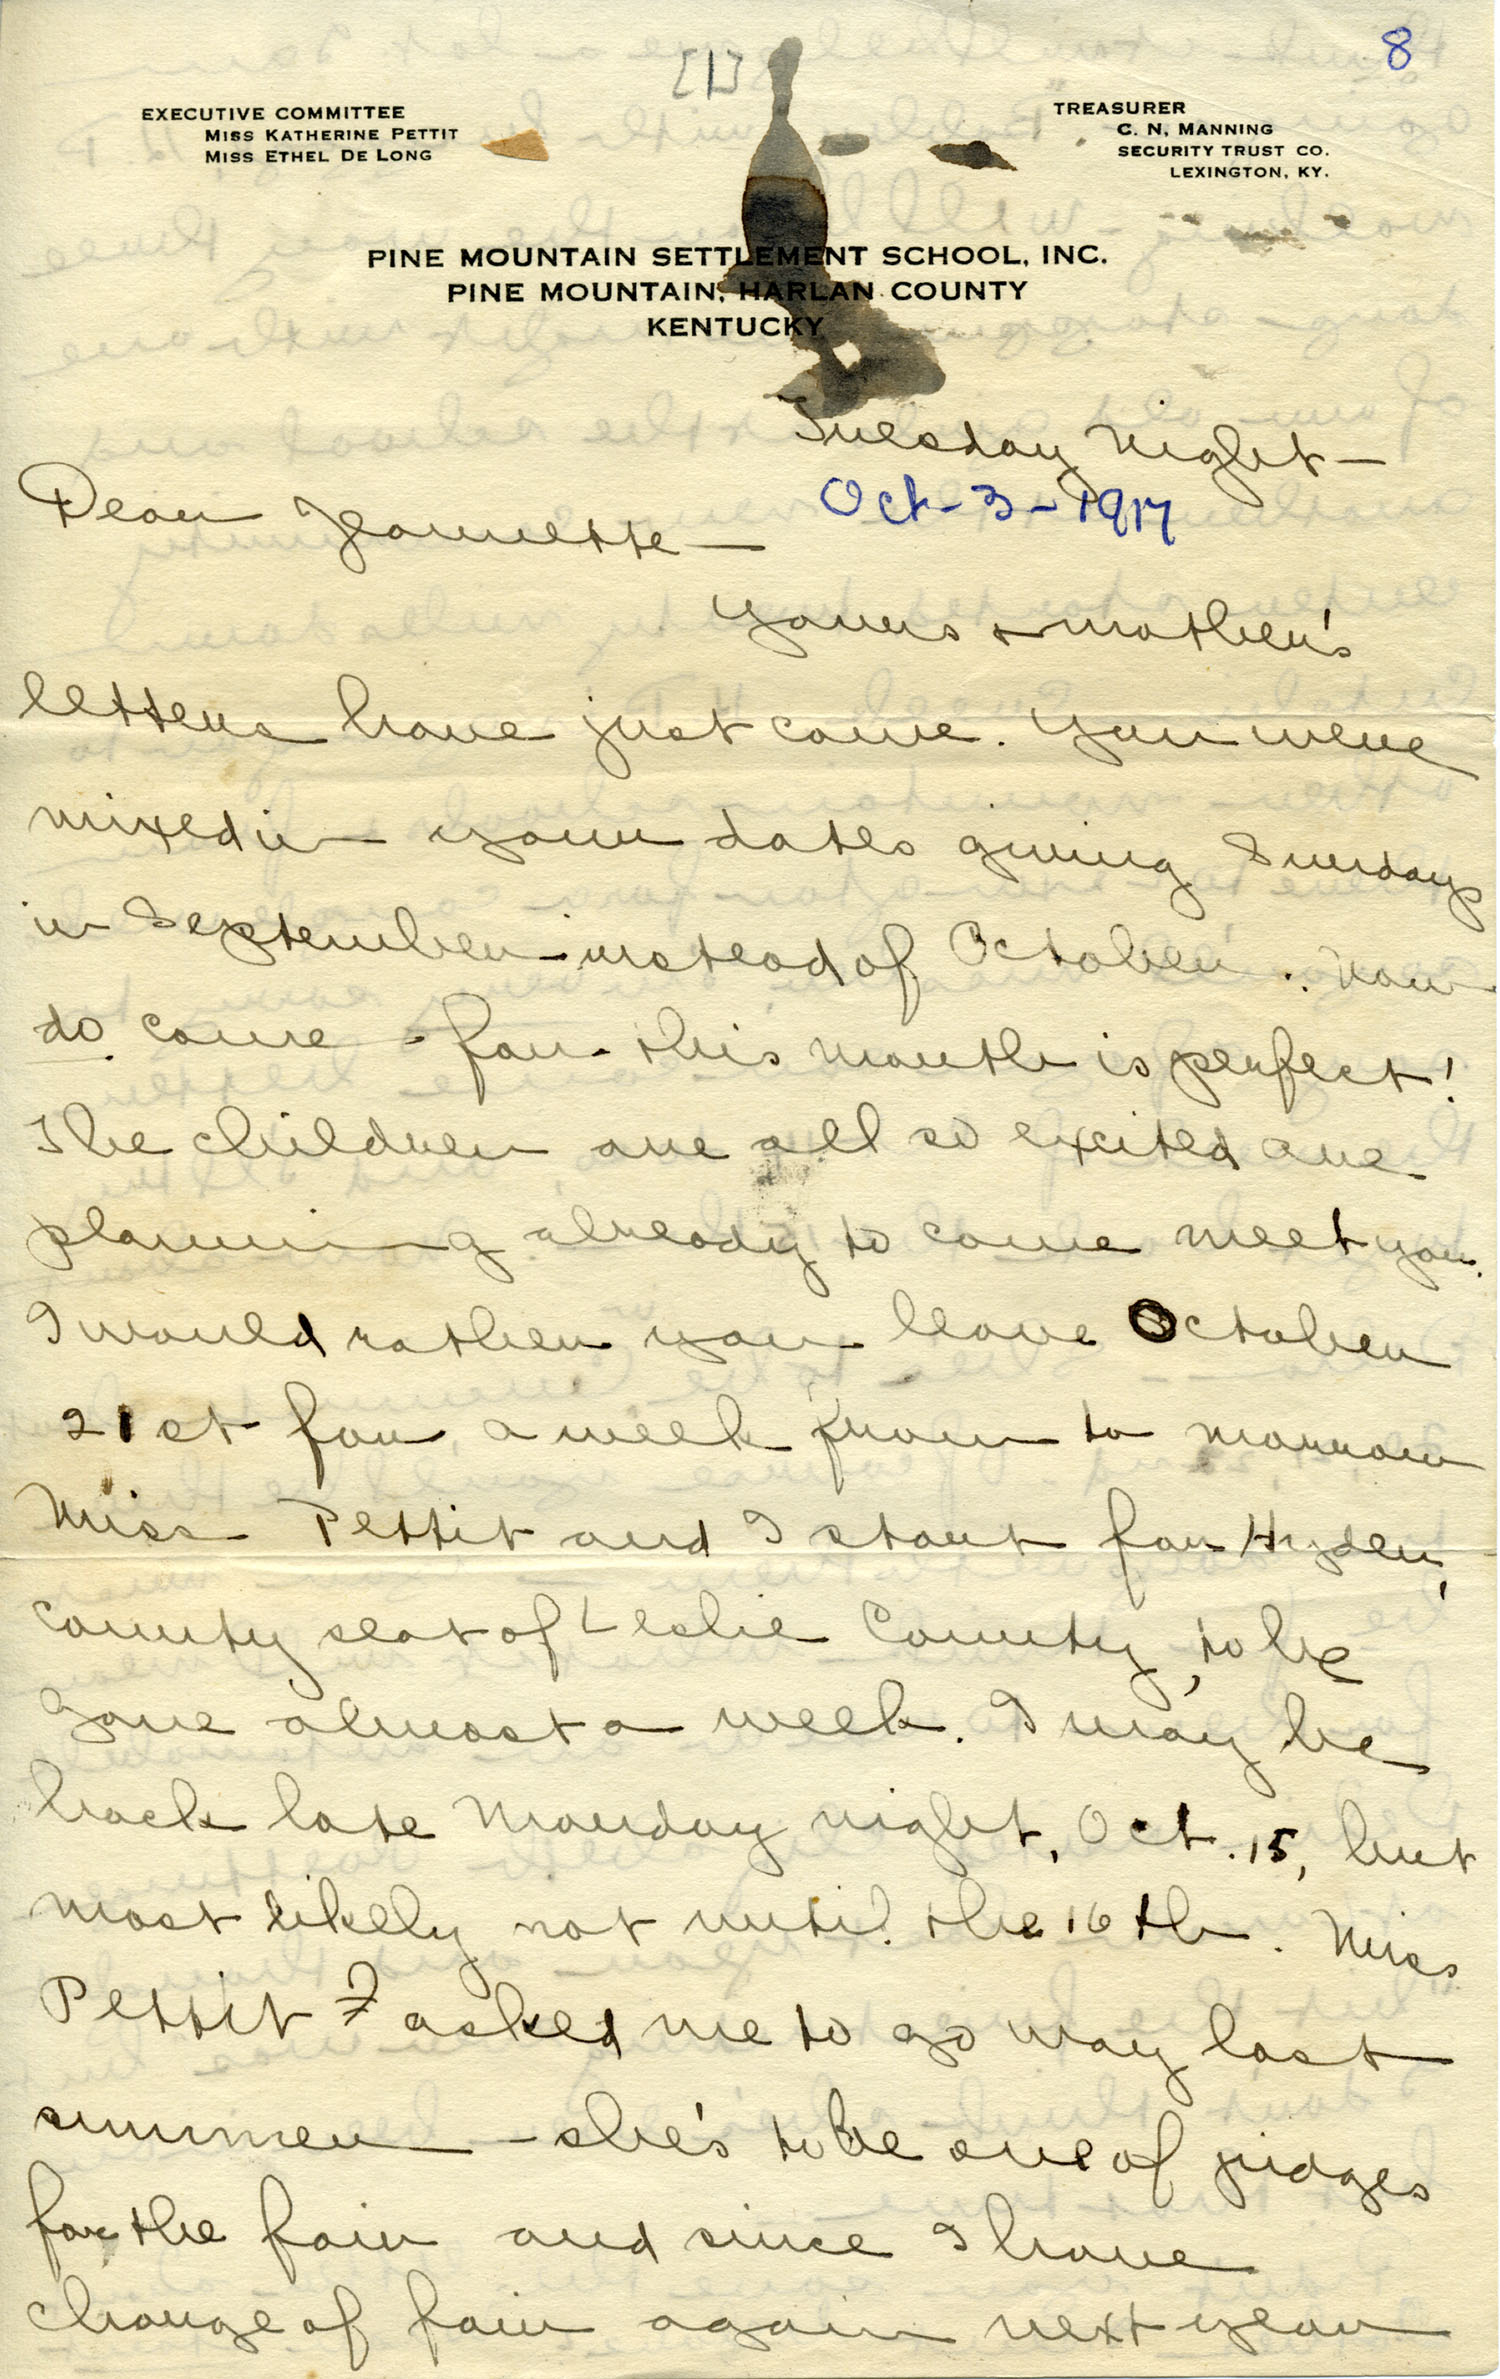 8
[1]
EXECUTIVE COMMITTEE
MISS KATHERINE PETTIT
MISS ETHEL DE LONG
TREASURER
C. N. MANNING
SECURITY TRUST CO.
LEXINGTON, KY.
PINE MOUNTAIN SETTLEMENT SCHOOL, INC.
PINE MOUNTAIN, HARLAN COUNTY
KENTUCKY
Tuesday Night—
Oct-3-1917
Dear Jeannette—
Yours & mother's
letters have just come. You were
mixed in your dates giving Sundays
in September instead of October. Now
do come for this month is perfect!
The children are all so excited are
planning already to come meet you.
I would rather you leave October
21st for a week from to morrow
Miss Pettit and I start for Hyden,
county seat of Leslie County, to be
gone almost a week. I may be
back late Monday night, Oct. 15, but
most likely not until the 16th. Miss
Pettit asked me to go way last
summer - she's to be one of judges
for the fair and since I have
charge of fair again next year